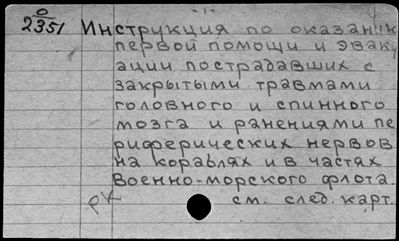 0
2351 Инструкция по оказанию
первой помощи и эваку
ации пострадавших с
закрытыми травмами
головного и спинного
мозга и ранениями пе
риферических нервов
на кораблях и в частях
Военно-морского флота.
РХ см. след. карт.